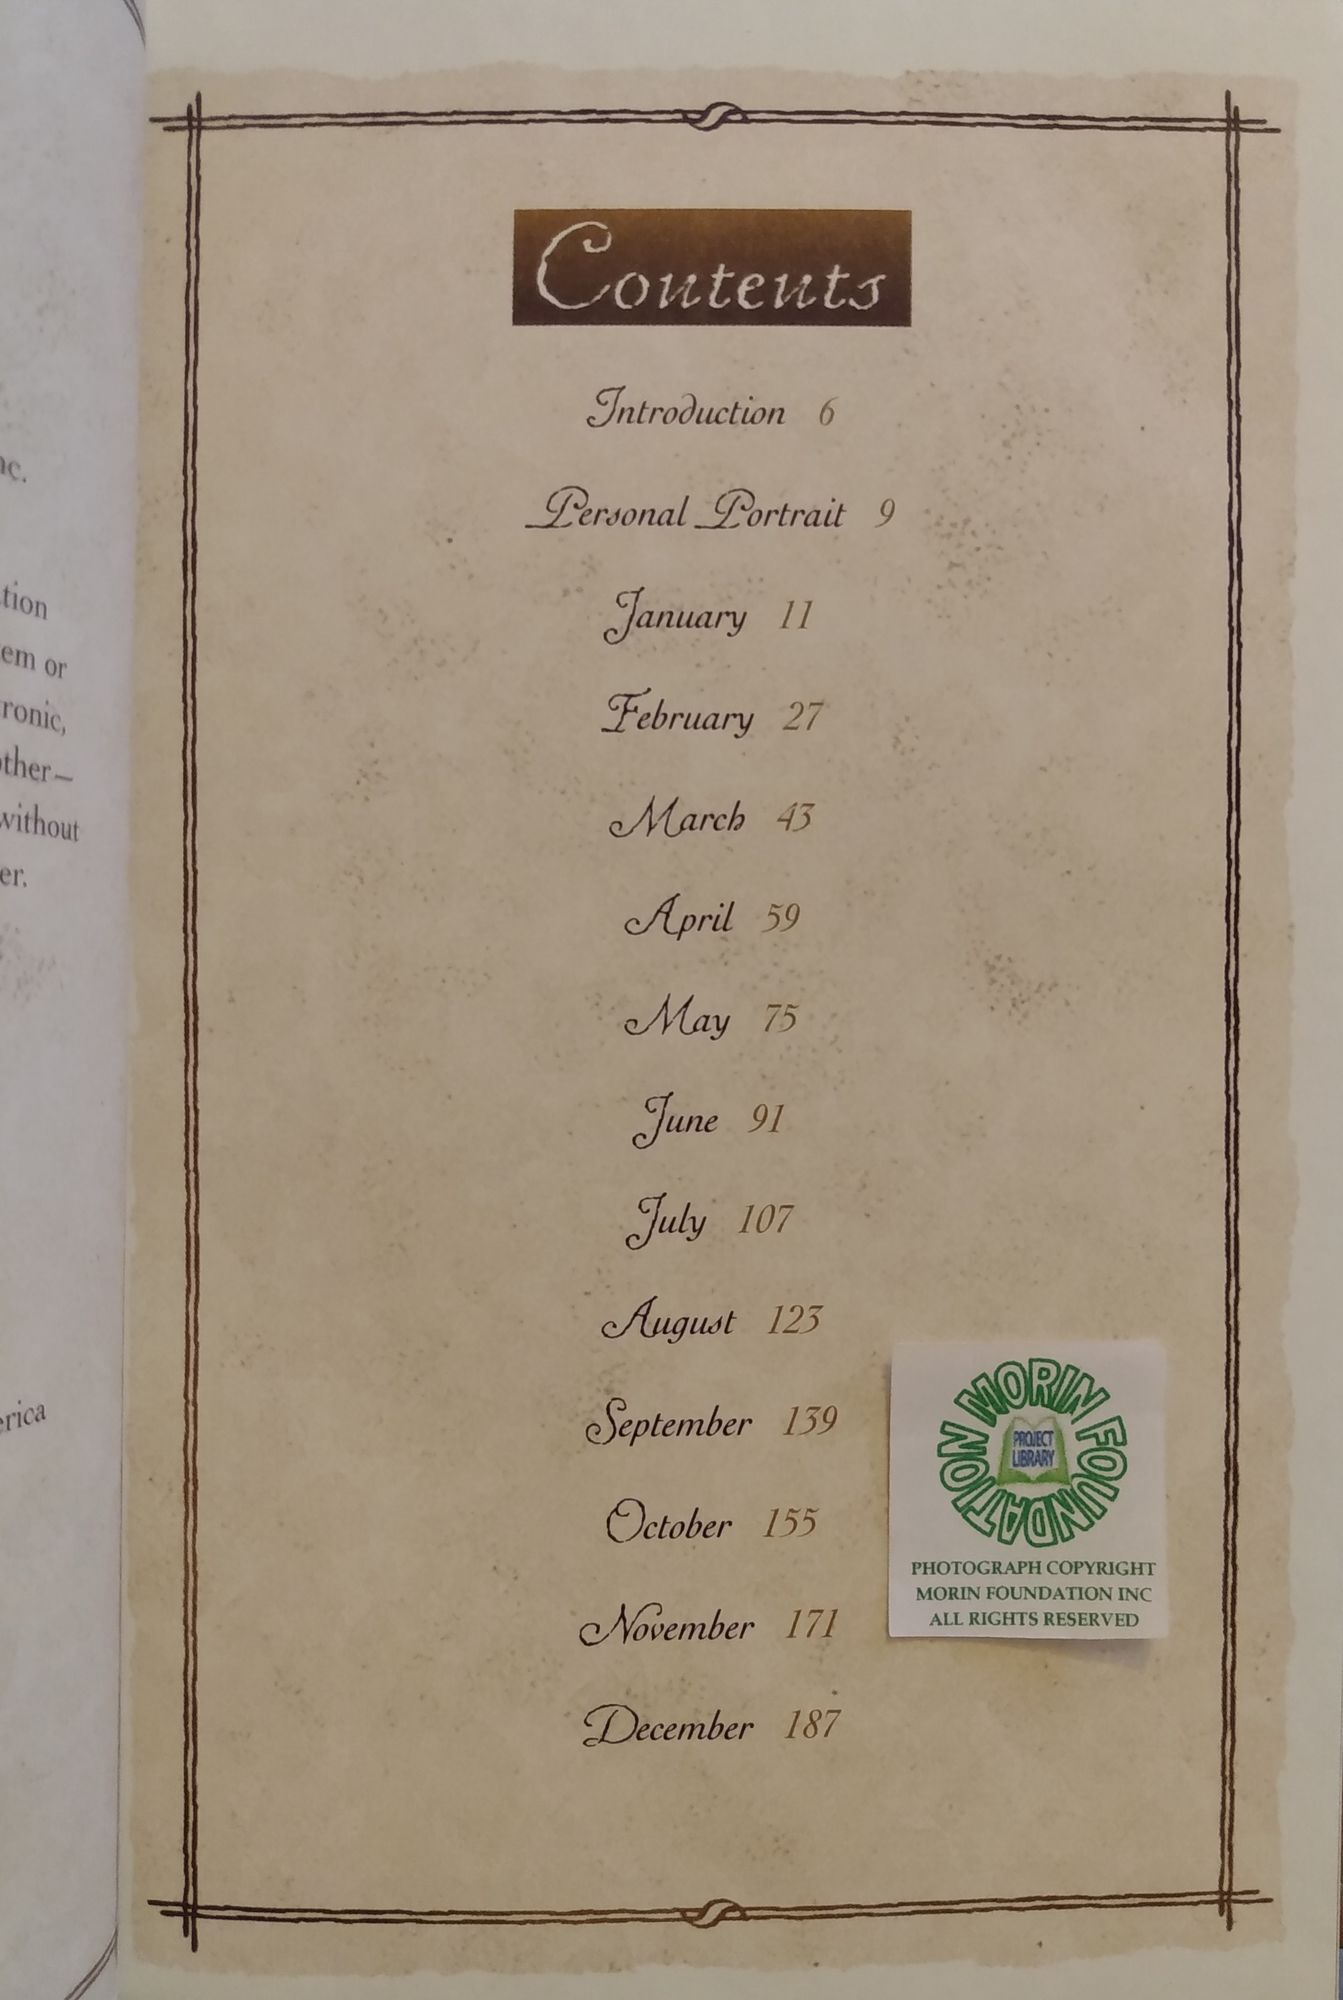 nc.
tion
em or
ronic,
other—
without
er.
erica
Contents
Introduction 6
Personal Portrait 9
January 11
February 27
March 43
April 59
May 75
June 91
July 107
August 123
September 139
October 155
November 171
December 187
MORIN FOUNDATION
PROJECT
LIBRARY
PHOTOGRAPH COPYRIGHT
MORIN FOUNDATION INC
ALL RIGHTS RESERVED